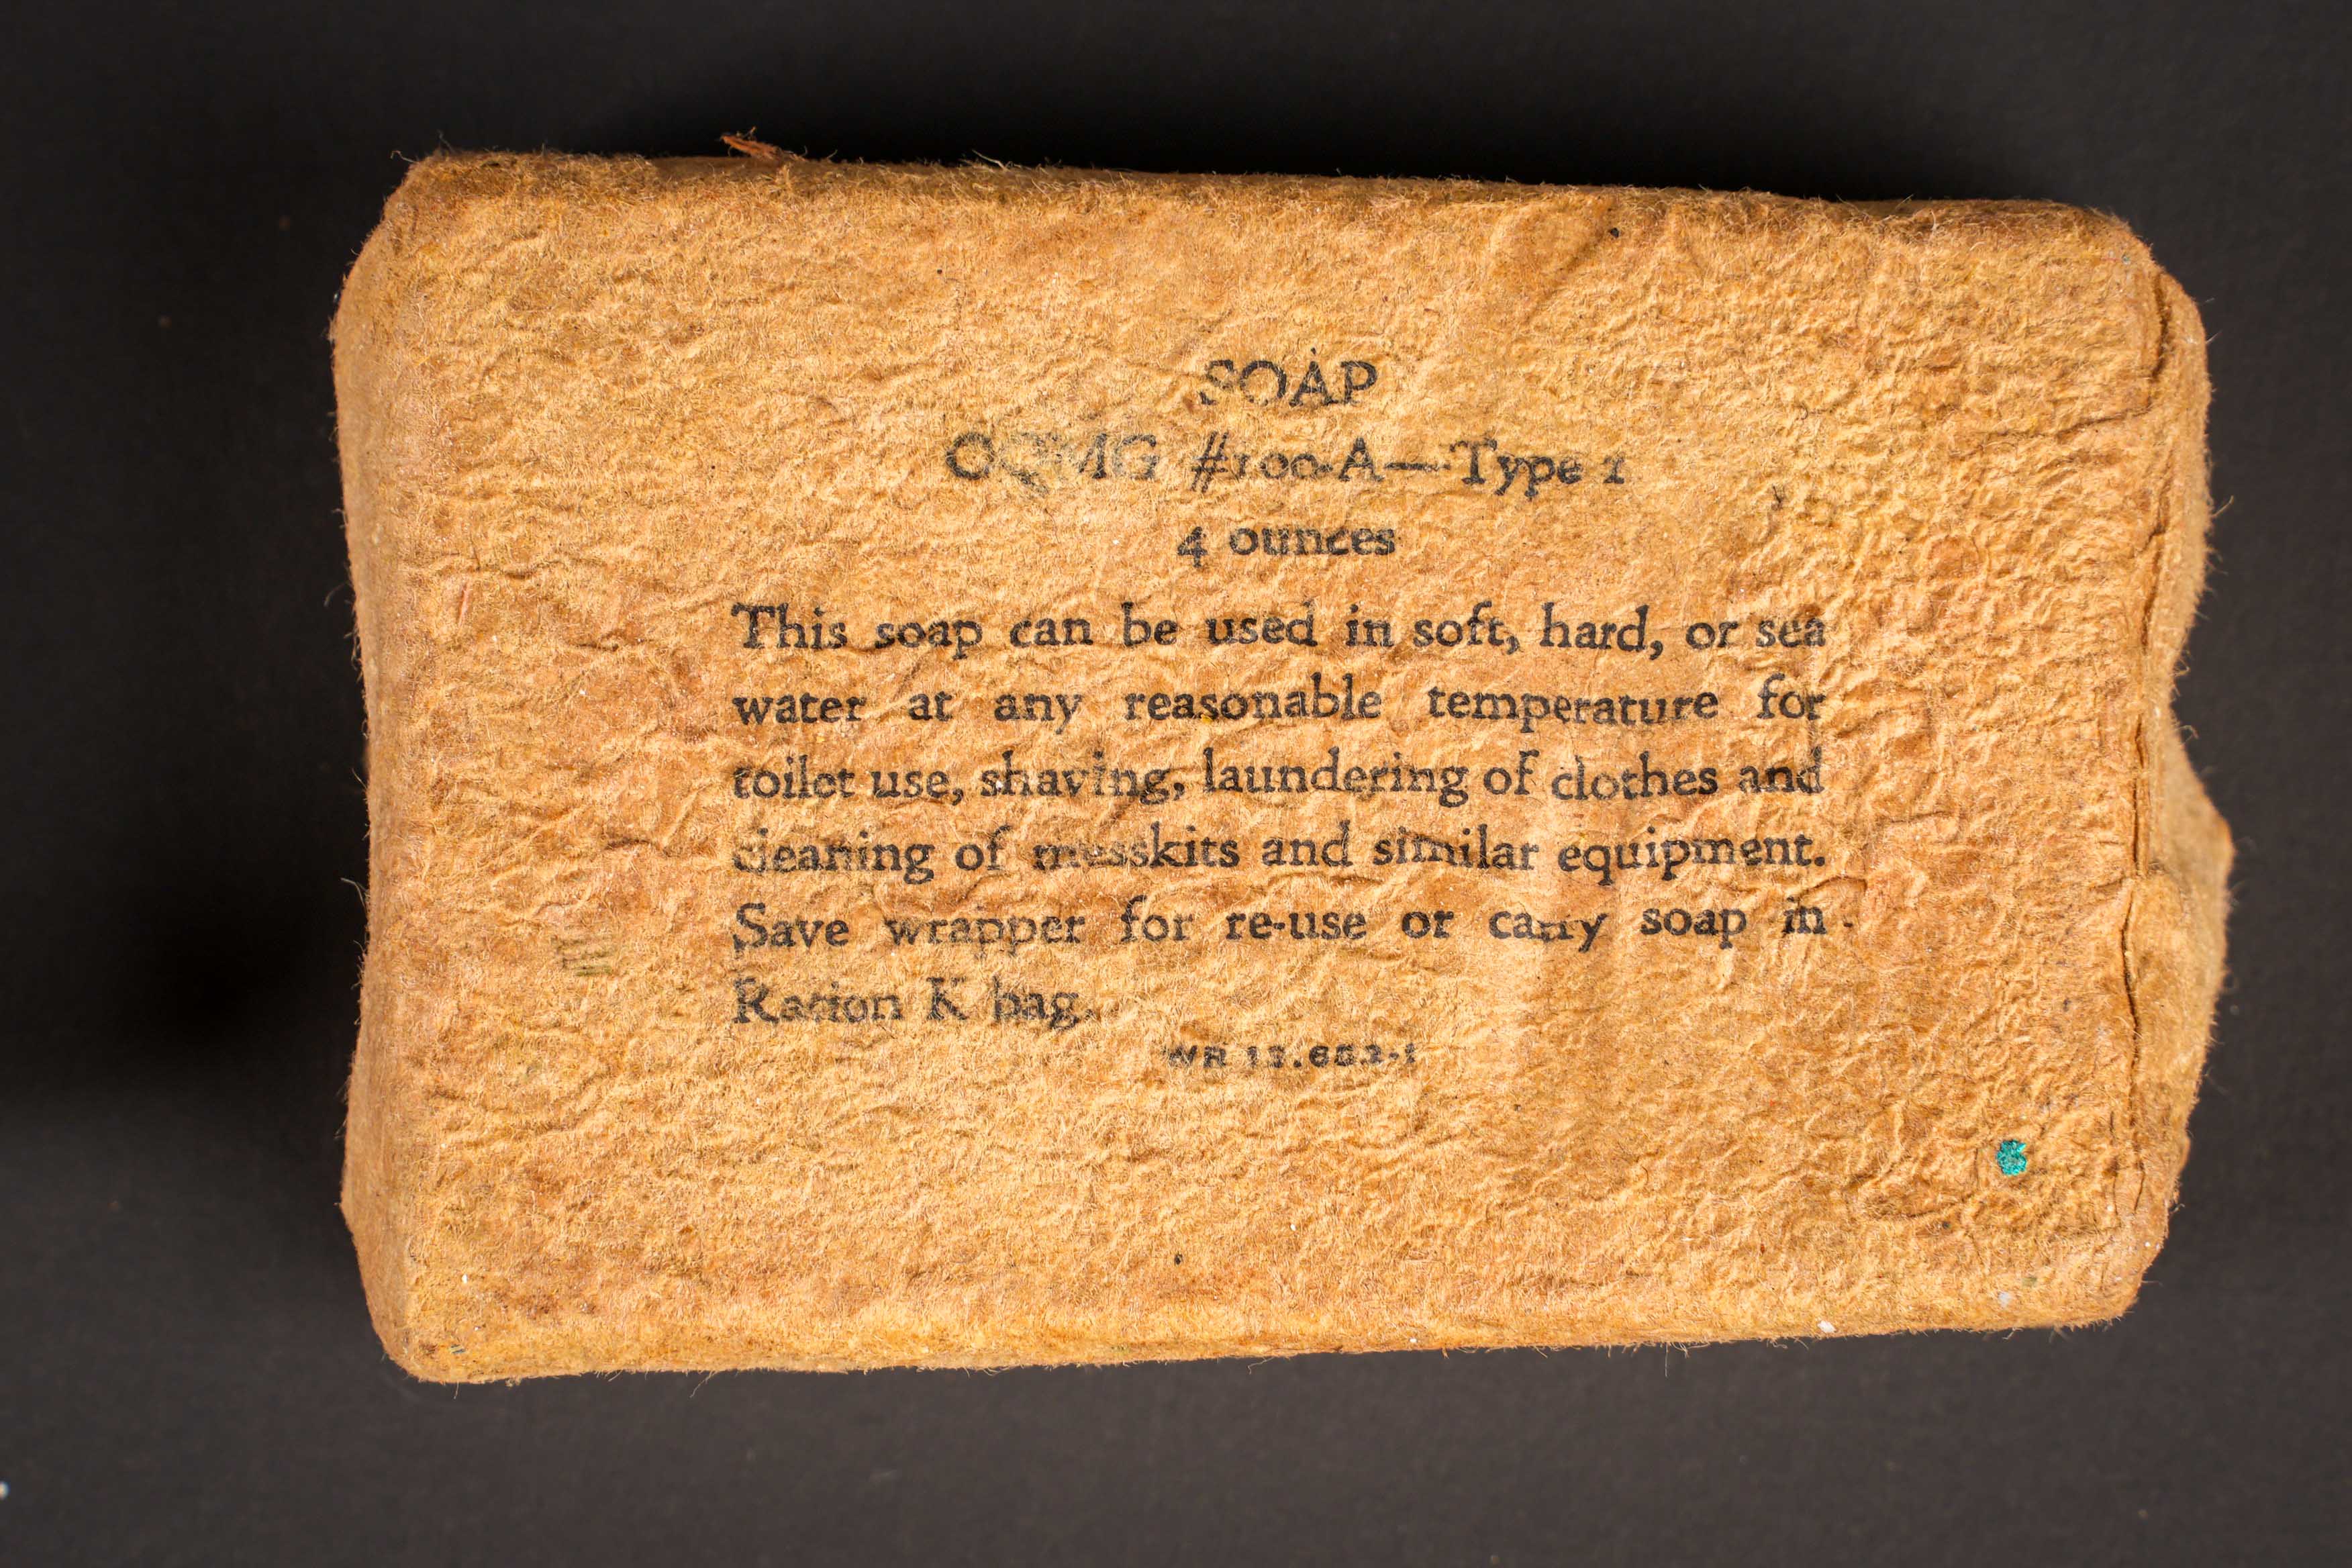 SOAP
OQMG #100-A—Type 1
4 ounces
This soap can be used in soft, hard, or sea
water at any reasonable temperature for
toilet use, shaving, laundering of clothes and
cleaning of messkits and similar equipment.
Save wrapper for re-use or carry soap in
Ration K bag.
WR